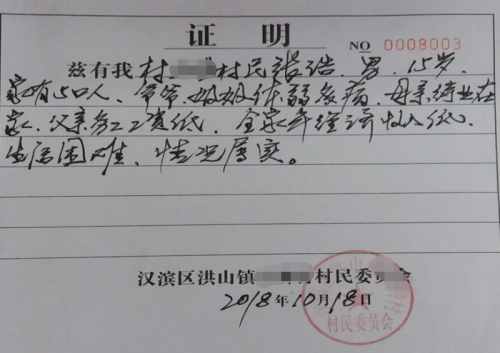 证明
NO 0008003
兹有我村村民浩，男，15岁，
家有5口人，爷爷、奶奶体弱多病，母亲待业在
家，父亲务工工资低，全家年经济收入低，
生活困难，情况属实。
汉滨区洪山镇村民委会
2018年10月18日
村民委员会